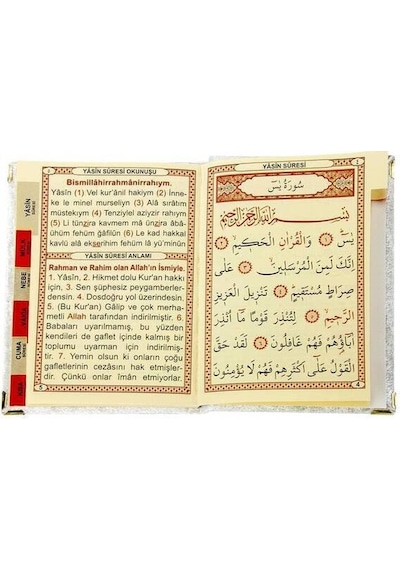 YÂSİN SÛRESİ OKUNUŞU
Bismillâhirrahmânirrahıym.
Yâsîn (1) Vel kur'ânil hakiym (2) İnne-
ke le minel murseliyn (3) Alâ sırâtım
müstekıym (4) Tenziylel aziyzir rahıym
(5) Li tünzira kavmen mâ ünzira âbâ-
ühüm fehüm ğâfilûn (6) Le kad hakkal
kavlü alâ ekserihim fehüm lâ yü'minûn
YÂSİN SÛRESİ ANLAMI
Rahman ve Rahim olan Allah'ın İsmiyle.
1. Yâsîn, 2. Hikmet dolu Kur'an hakkı
için, 3. Sen şüphesiz peygamberler-
densin. 4. Dosdoğru yol üzerindesin.
5. (Bu Kur'an) Gâlip ve çok merha-
metli Allah tarafından indirilmiştir. 6
Babaları uyarılmamış, bu yüzden
kendileri de gaflet içinde kalmış bir
toplumu uyarman için indirilmiş-
tir. 7. Yemin olsun ki onların çoğu
gafletlerinin cezasını hak etmişler-
dir. Çünkü onlar îman etmiyorlar.
YÂSİN
MÜLK
NEBE
CUMA
YÂSİN SÛRESİ
سُورَةُ يٰسٓ
بِسْمِ اللّٰهِ الرَّحْمٰنِ الرَّحِيمِ
يٰسٓ ﴿١﴾ وَالْقُرْاٰنِ الْحَكِيمِ ﴿٢﴾
اِنَّكَ لَمِنَ الْمُرْسَلِينَ ﴿٣﴾ عَلٰى
صِرَاطٍ مُسْتَقِيمٍ ﴿٤﴾ تَنْزِيلَ الْعَزِيزِ
الرَّحِيمِ ﴿٥﴾ لِتُنْذِرَ قَوْمًا مَٓا اُنْذِرَ
اٰبَٓاؤُ۬هُمْ فَهُمْ غَافِلُونَ ﴿٦﴾ لَقَدْ حَقَّ
الْقَوْلُ عَلٰٓى اَكْثَرِهِمْ فَهُمْ لَا يُؤْمِنُونَ
4